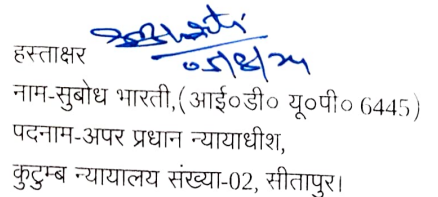 हस्ताक्षर
05/8/24
नाम-सुबोध भारती,(आई०डी० यू०पी० 6445)
पदनाम-अपर प्रधान न्यायाधीश,
कुटुम्ब न्यायालय संख्या-02, सीतापुर।